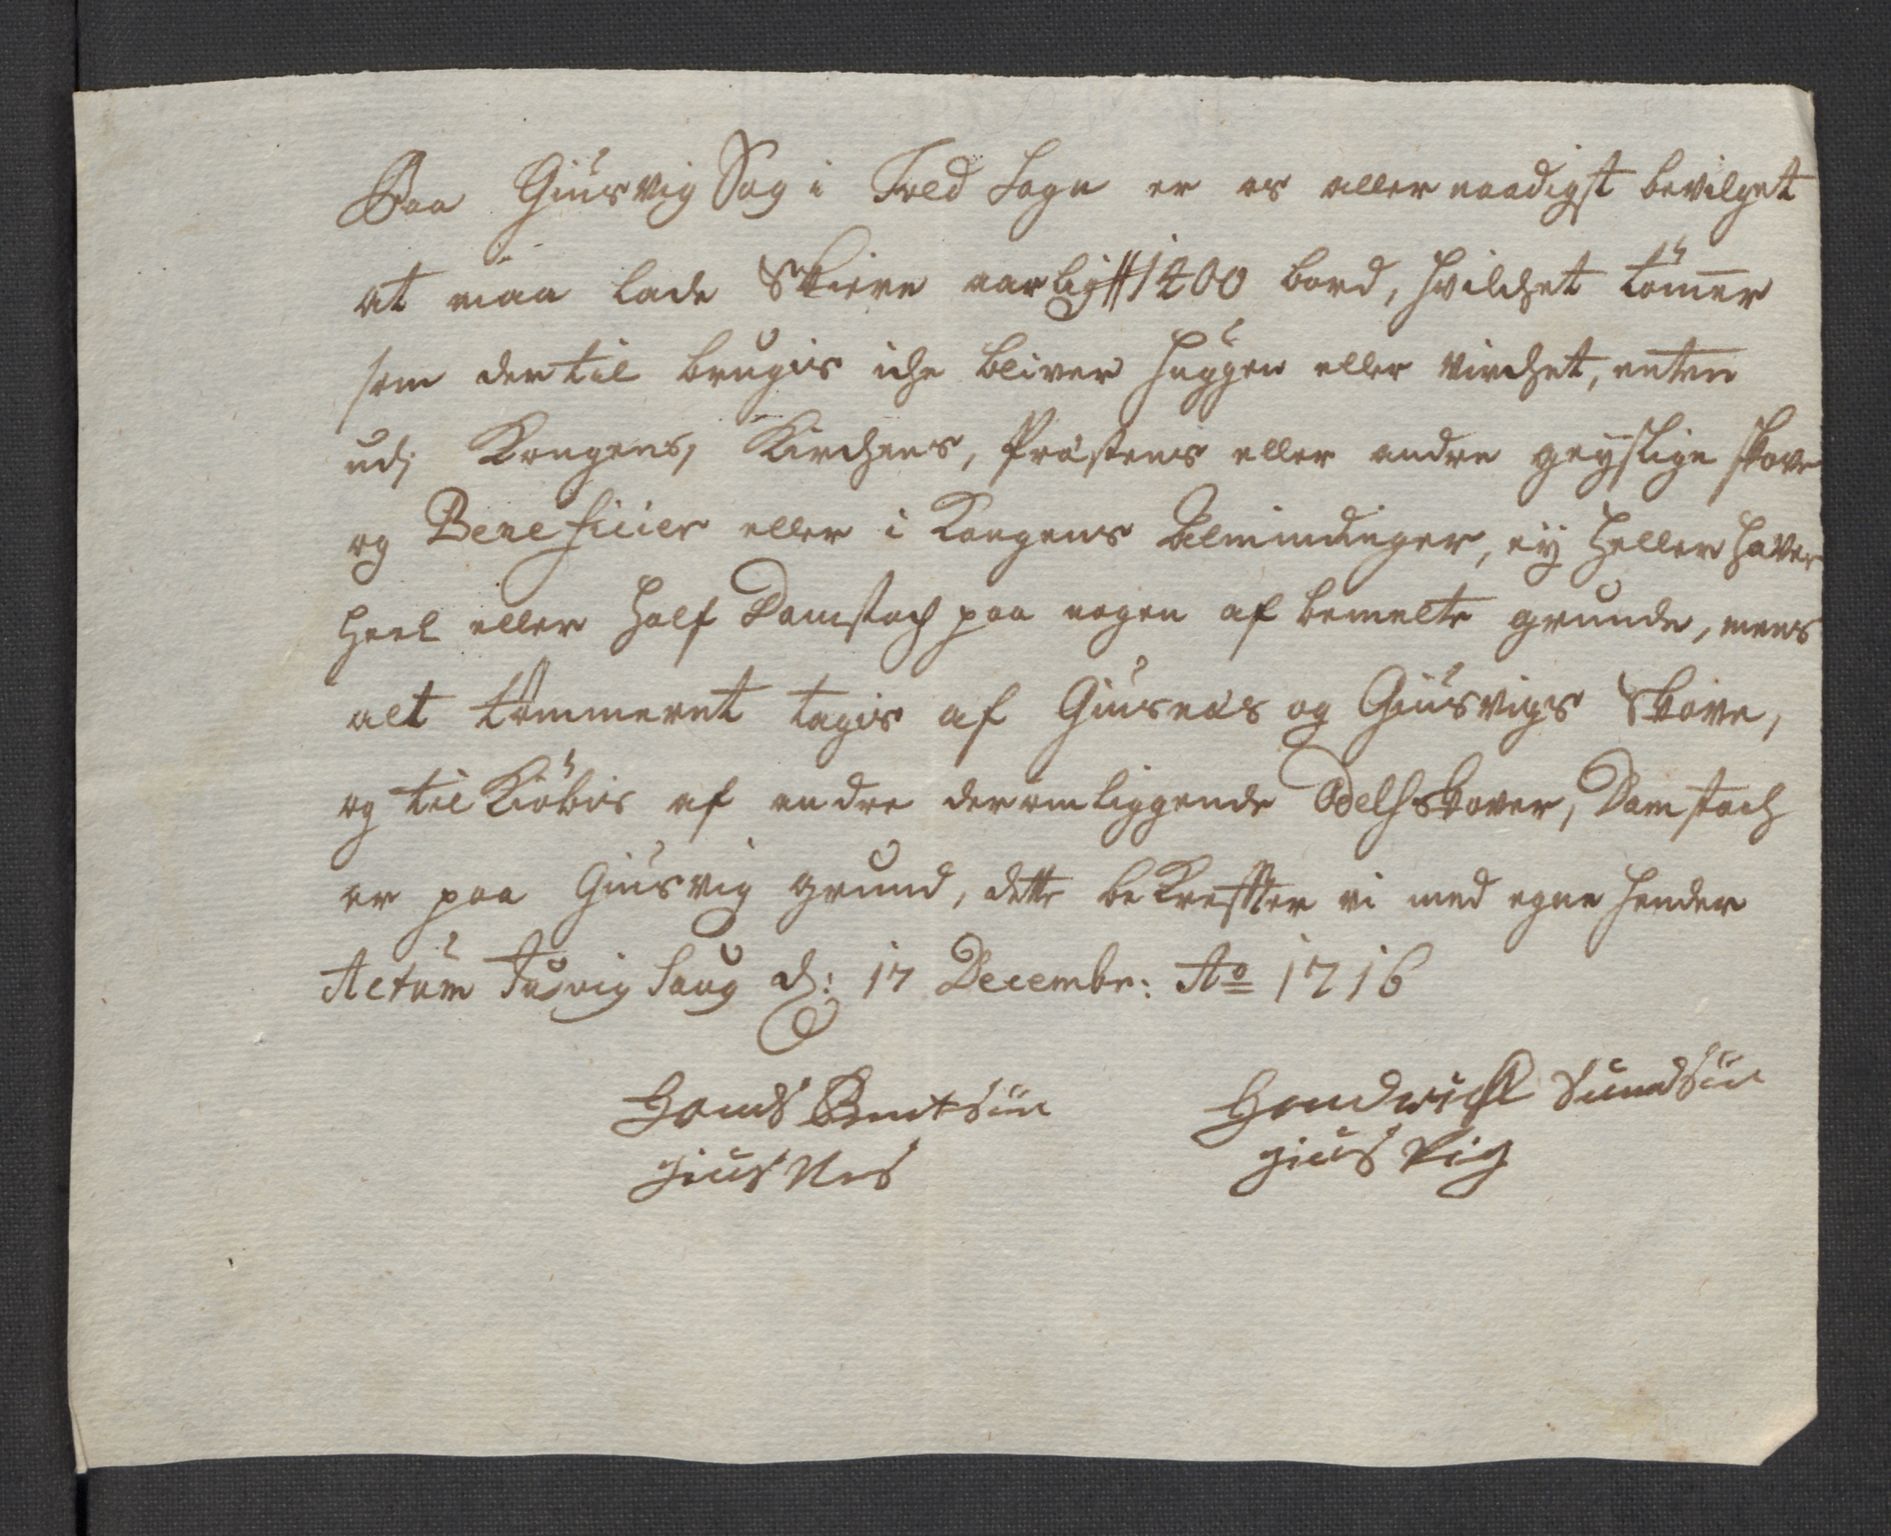 Paa Giusvig Sag i Fold Sogn er os aller naadigst bevilget
at maa lade Skiere aarligt 1400 bord, hvilchet tömer
som der til brugis iche bliver huggen eller virchet, enten
udj Kongens, Kirchens, Præstens eller andre geystlige skove
og Beneficier eller i Kongens Alminding er, ey heller haver
heel eller half Damstoch paa nogen af bemelte grunde, mens
alt tömmeret tages af Giusnæs og Giusvigs Skove,
og til Kiöbis af andre der om liggende Odelsskover, Damstoch
er paa Giusvig grund, dette bekreffter vi med egne hender
Actum Jusvig Saug d: 17 Decembr: Ao 1716
Hands Bentsön Hendrich Simdsön
gius Nes gius Vig